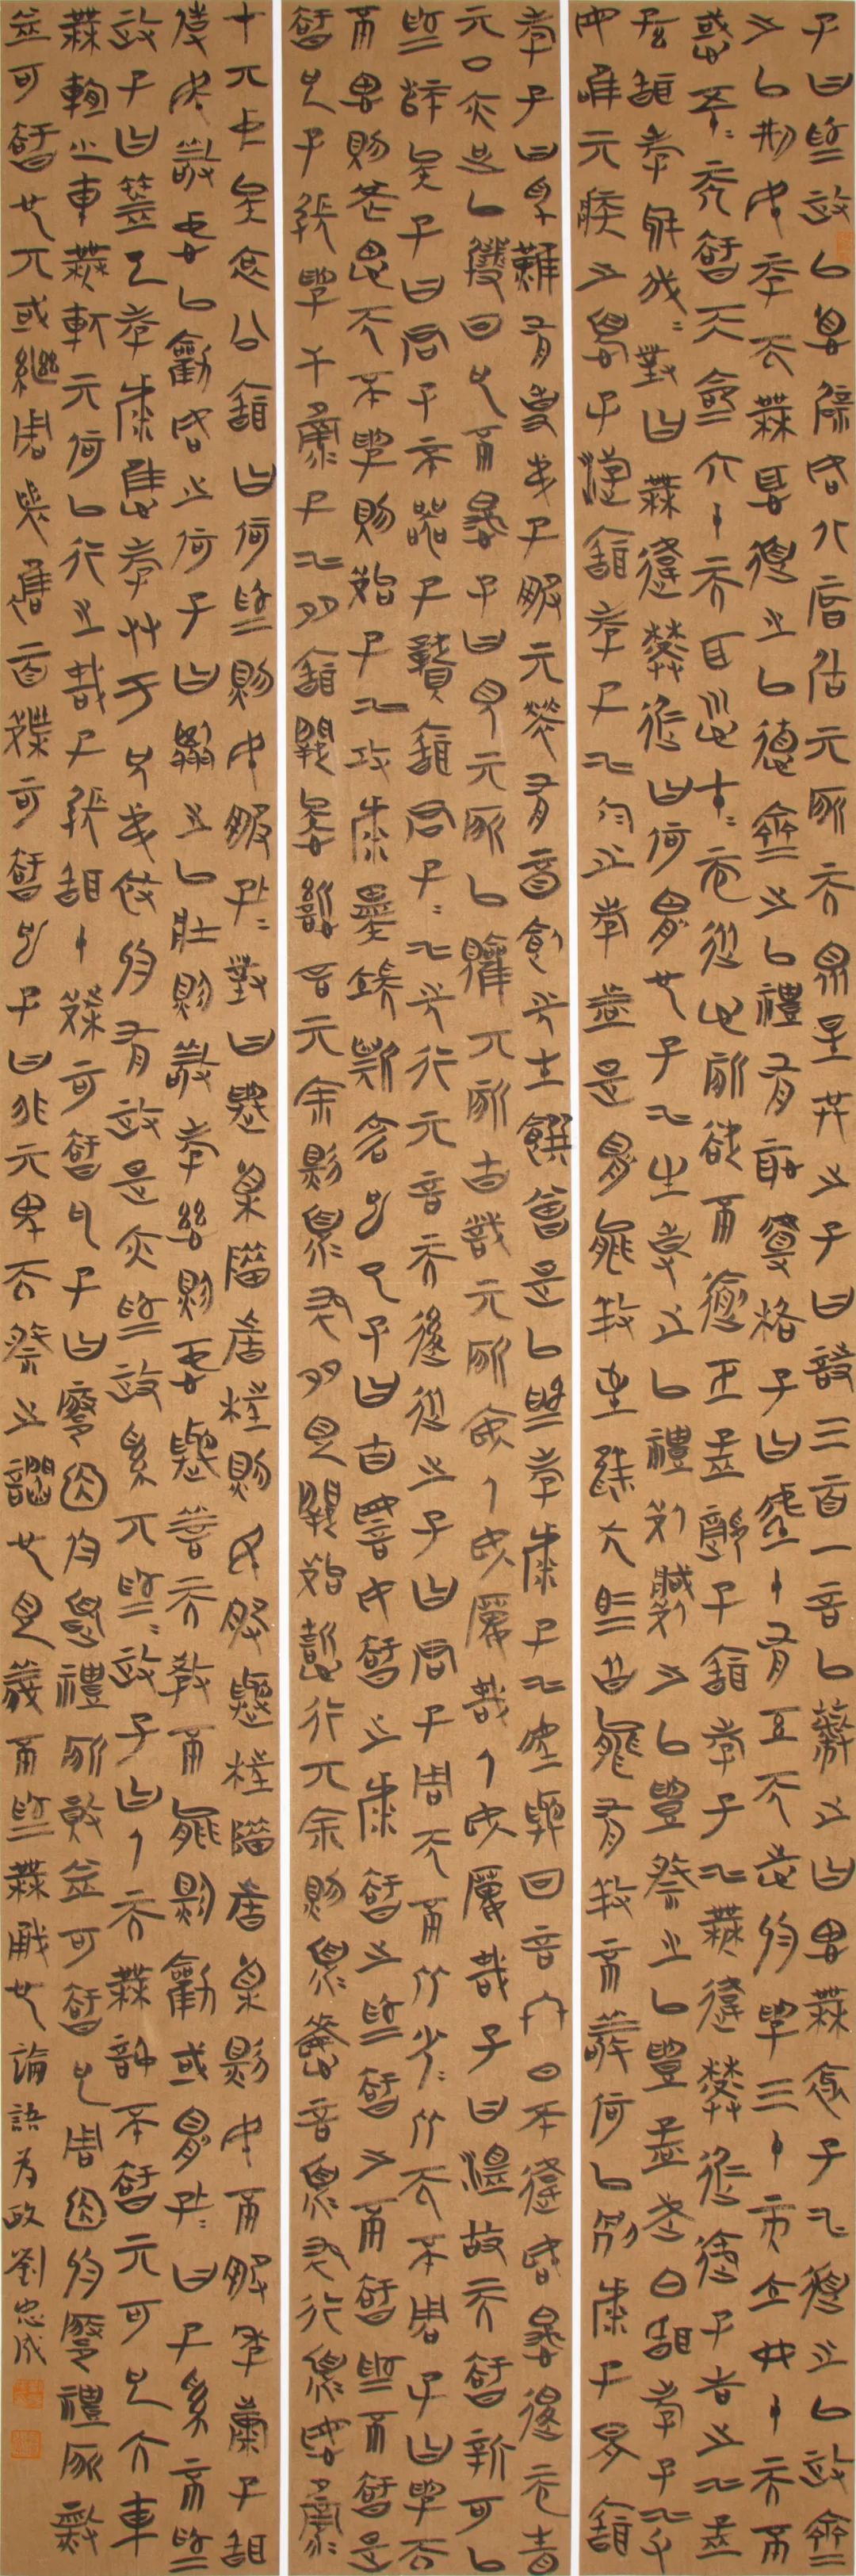 子曰為政以德譬如北辰居其所而眾星共之子曰詩三百一言以蔽之曰思無邪子曰道之以政齊
之以刑民免而無恥道之以德齊之以禮有恥且格子曰吾十有五而志於學三十而立四十而不
惑五十而知天命六十而耳順七十而從心所欲不踰矩孟懿子問孝子曰無違樊遲御子告之曰孟
孫問孝於我我對曰無違樊遲曰何謂也子曰生事之以禮死葬之以禮祭之以禮孟武伯問孝子曰父
母唯其疾之憂子游問孝子曰今之孝者是謂能養至於犬馬皆能有養不敬何以別乎子夏問
孝子曰色難有事弟子服其勞有酒食先生饌曾是以為孝乎子曰吾與回言終日不違如愚退而省
其私亦足以發回也不愚子曰視其所以觀其所由察其所安人焉廋哉人焉廋哉子曰溫故而知新可以
為師矣子曰君子不器子貢問君子子曰先行其言而後從之子曰君子周而不比小人比而不周子曰學而不
思則罔思而不學則殆子曰攻乎異端斯害也已子曰由誨女知之乎知之為知之不知為不知是
知也子張學干祿子曰多聞闕疑慎言其餘則寡尤多見闕殆慎行其餘則寡悔言寡尤行寡悔祿
在其中矣哀公問曰何為則民服孔子對曰舉直錯諸枉則民服舉枉錯諸直則民不服季康子問
使民敬忠以勸如之何子曰臨之以莊則敬孝慈則忠舉善而教不能則勸或謂孔子曰子奚不為
政子曰書云孝乎惟孝友于兄弟施於有政是亦為政奚其為為政子曰人而無信不知其可也大車
無輗小車無軏其何以行之哉子張問十世可知也子曰殷因於夏禮所損益可知也周因於殷禮所損
益可知也其或繼周者雖百世可知也子曰非其鬼而祭之諂也見義不為無勇也論語為政劉忠成